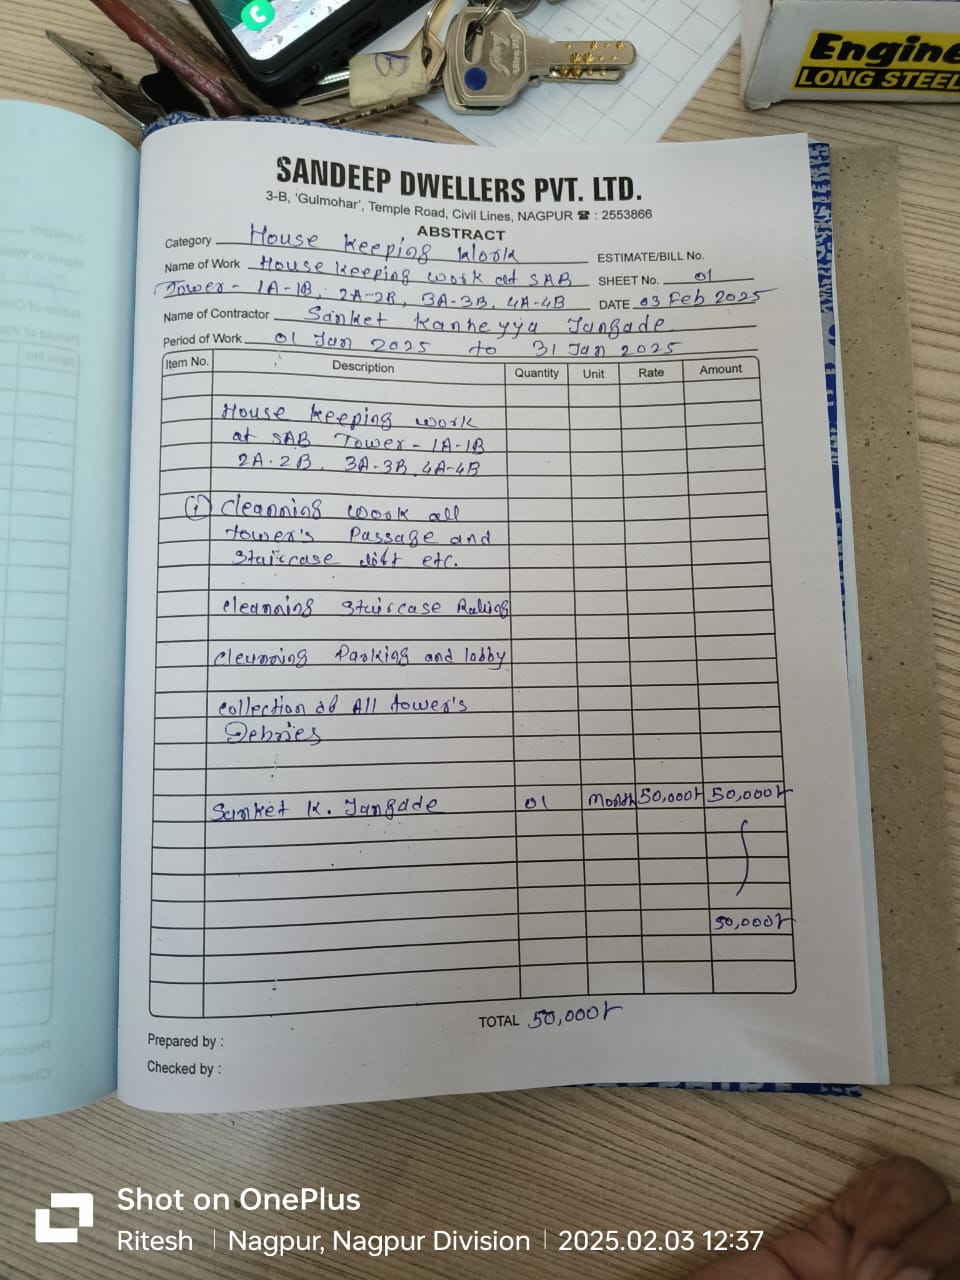 Engine
LONG STEEL
SANDEEP DWELLERS PVT. LTD.
3-B, 'Gulmohar', Temple Road, Civil Lines, NAGPUR ☎ : 2553866
ABSTRACT
Category House keeping Work
ESTIMATE/BILL No.
Name of Work House keeping work at SAB
SHEET No. 01
Tower - 1A-1B, 2A-2B, 3A-3B, 4A-4B
DATE 03 Feb 2025
Name of Contractor Sanket Kanheyya Jangade
Period of Work 01 Jan 2025 to 31 Jan 2025
Item No. Description Quantity Unit Rate Amount
House keeping work
at SAB Tower - 1A-1B
2A-2B, 3A-3B, 4A-4B
① Cleanning work all
tower's Passage and
Staircase lift etc.
cleanning staircase Raling
cleanning Parking and lobby
collection of All tower's
Debries
Sanket K. Jangade 01 Month 50,000/- 50,000/-
50,000/-
TOTAL 50,000/-
Prepared by :
Checked by :
Shot on OnePlus
Ritesh | Nagpur, Nagpur Division | 2025.02.03 12:37